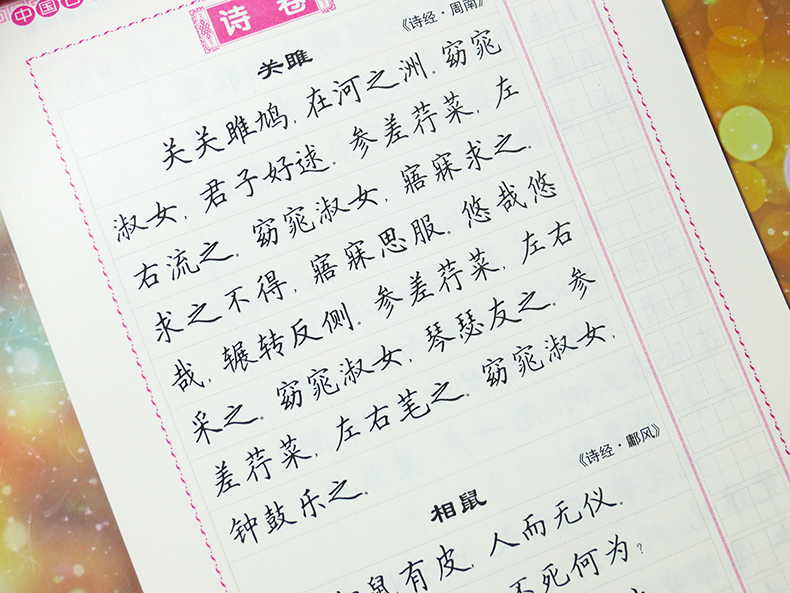 中国
诗卷
《诗经·周南》
关雎
关关雎鸠，在河之洲。窈窕
淑女，君子好逑。参差荇菜，左
右流之。窈窕淑女，寤寐求之。
求之不得，寤寐思服。悠哉悠
哉，辗转反侧。参差荇菜，左右
采之。窈窕淑女，琴瑟友之。参
差荇菜，左右芼之。窈窕淑女，
钟鼓乐之。
《诗经·鄘风》
相鼠
鼠有皮，人而无仪。
不死何为？